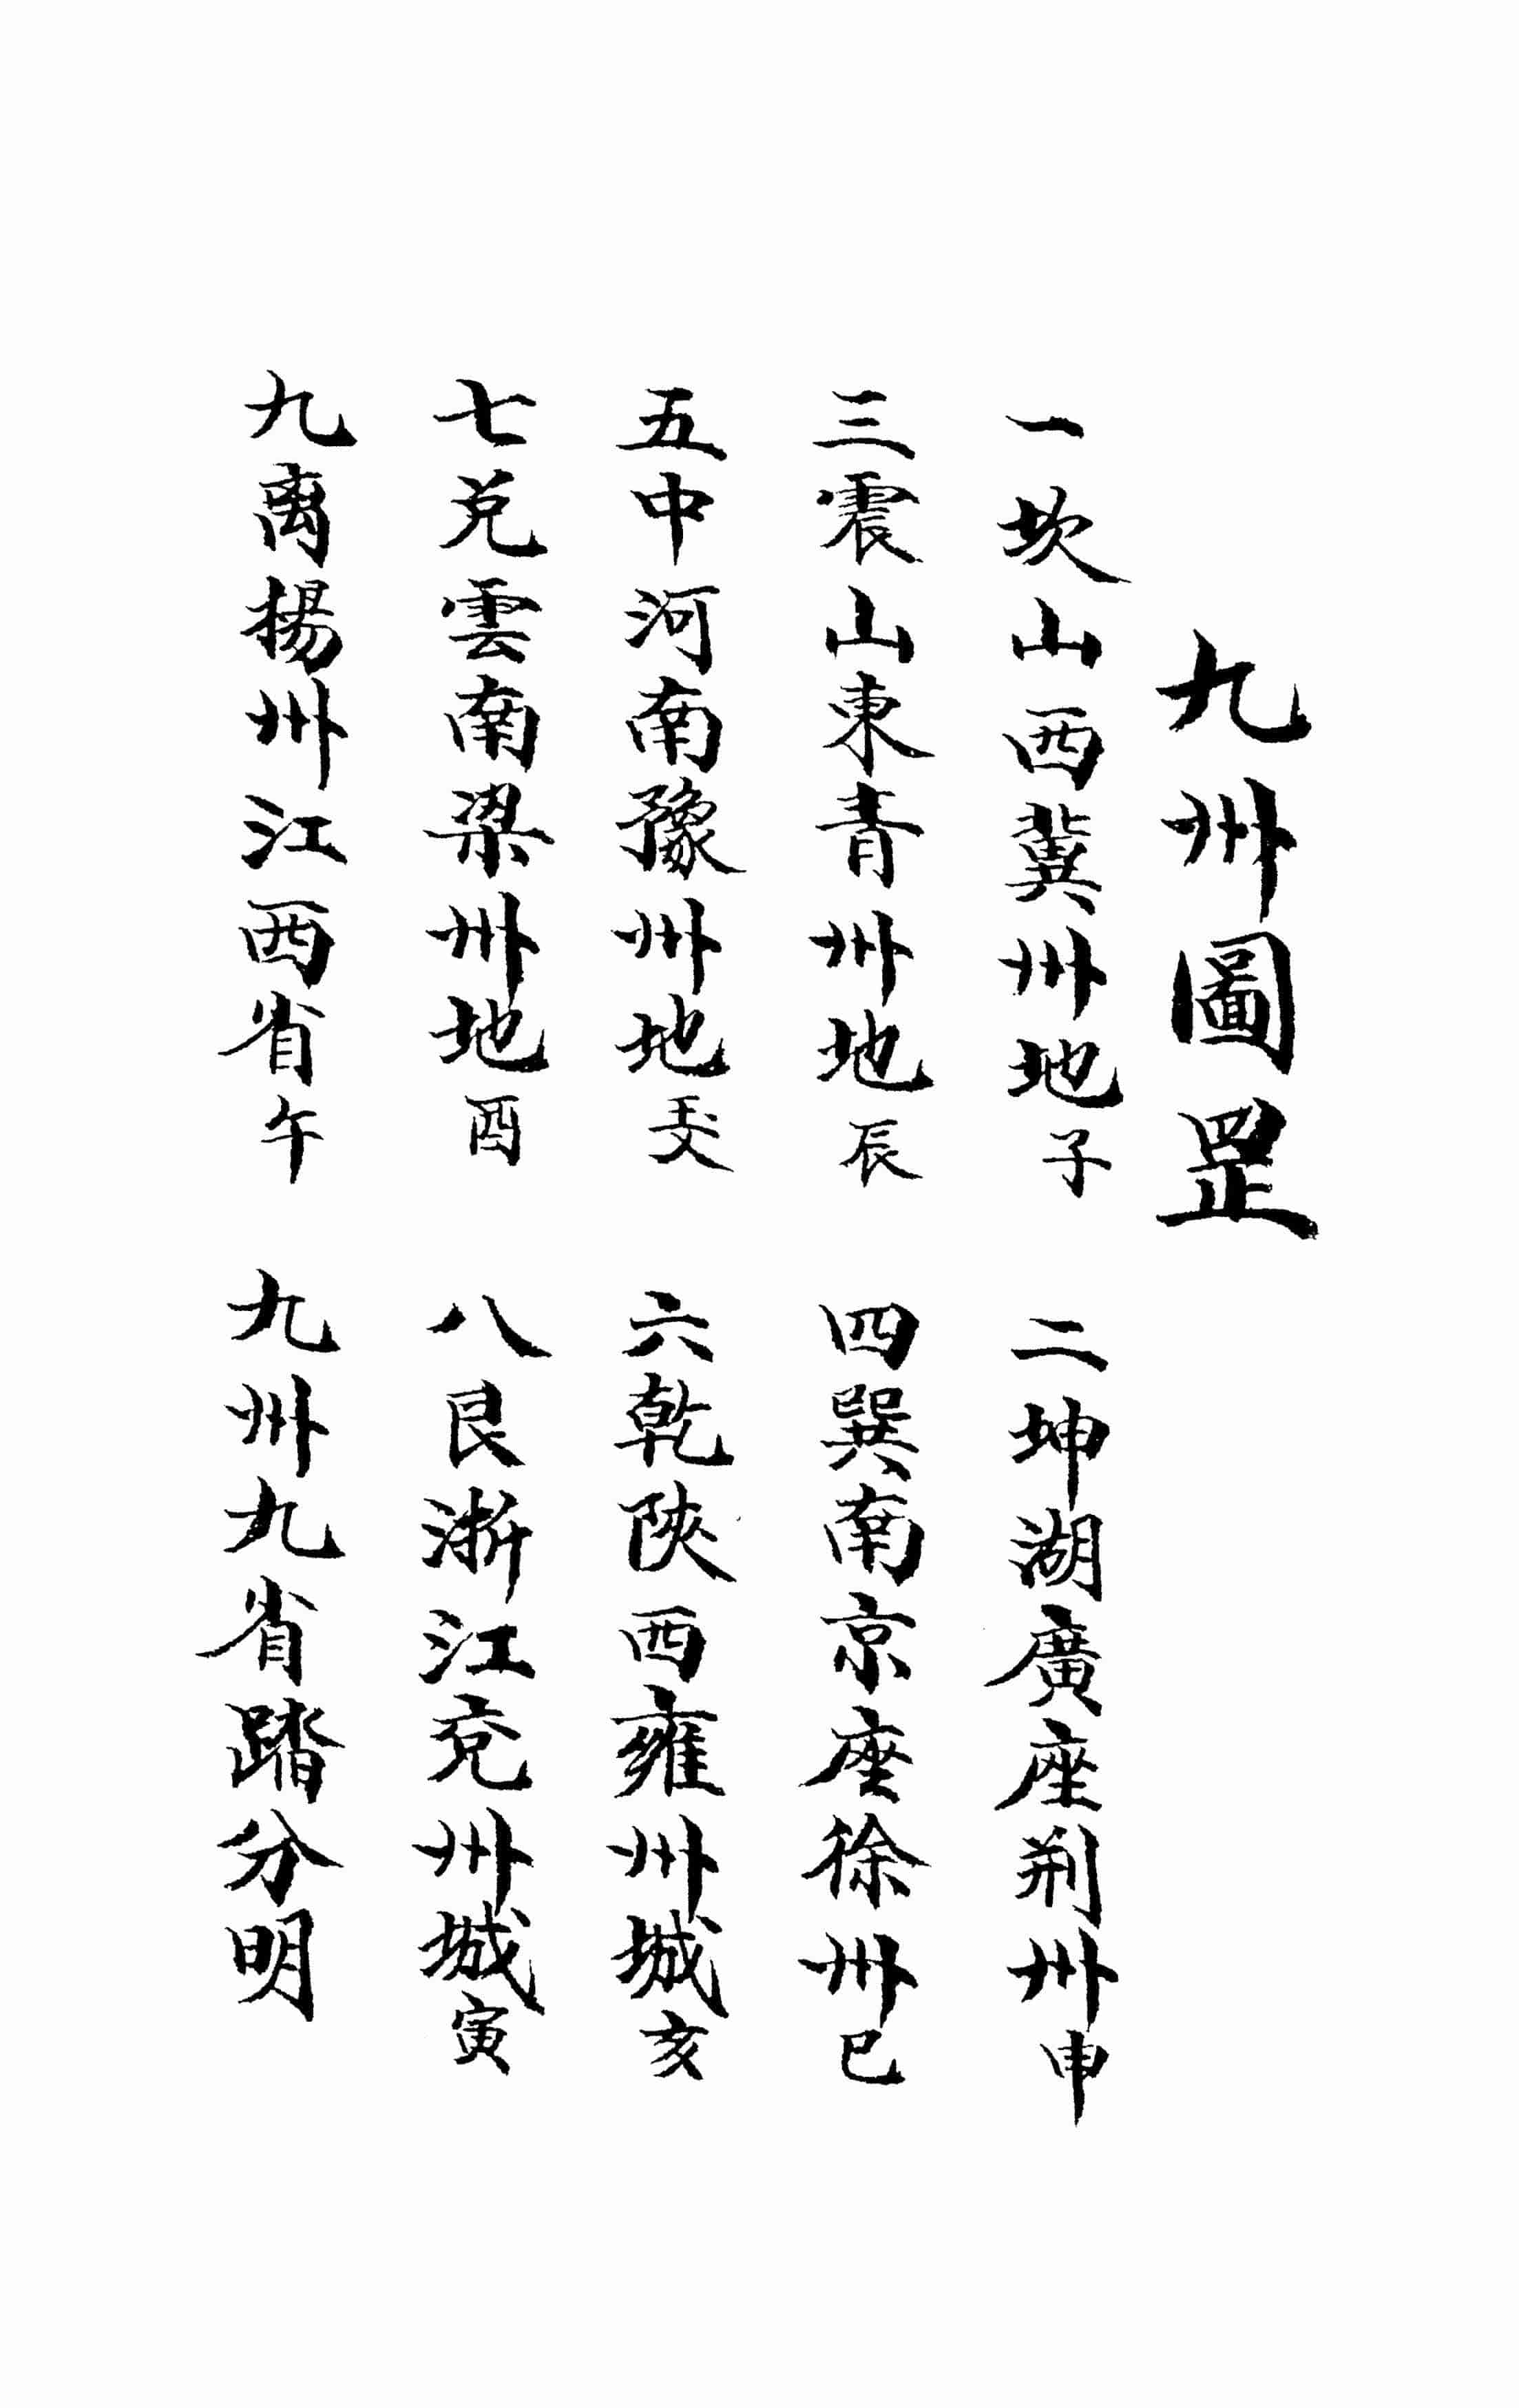 九州圖罡
一坎山西冀州地子 二坤湖廣座荆州申
三震山東青州地辰 四巽南京座徐州巳
五中河南豫州地 六乾陝西雍州城亥
七兑雲南梁州地酉 八艮浙江兖州城寅
九离揚州江西省午 九州九省踏分明